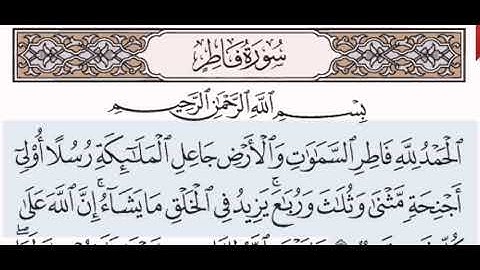 سُورَةُ فَاطِرٍ
بِسْمِ ٱللَّهِ ٱلرَّحْمَٰنِ ٱلرَّحِيمِ
ٱلْحَمْدُ لِلَّهِ فَاطِرِ ٱلسَّمَٰوَٰتِ وَٱلْأَرْضِ جَاعِلِ ٱلْمَلَٰٓئِكَةِ رُسُلًا أُو۟لِىٓ
أَجْنِحَةٍ مَّثْنَىٰ وَثُلَٰثَ وَرُبَٰعَ ۚ يَزِيدُ فِى ٱلْخَلْقِ مَا يَشَآءُ ۚ إِنَّ ٱللَّهَ عَلَىٰ